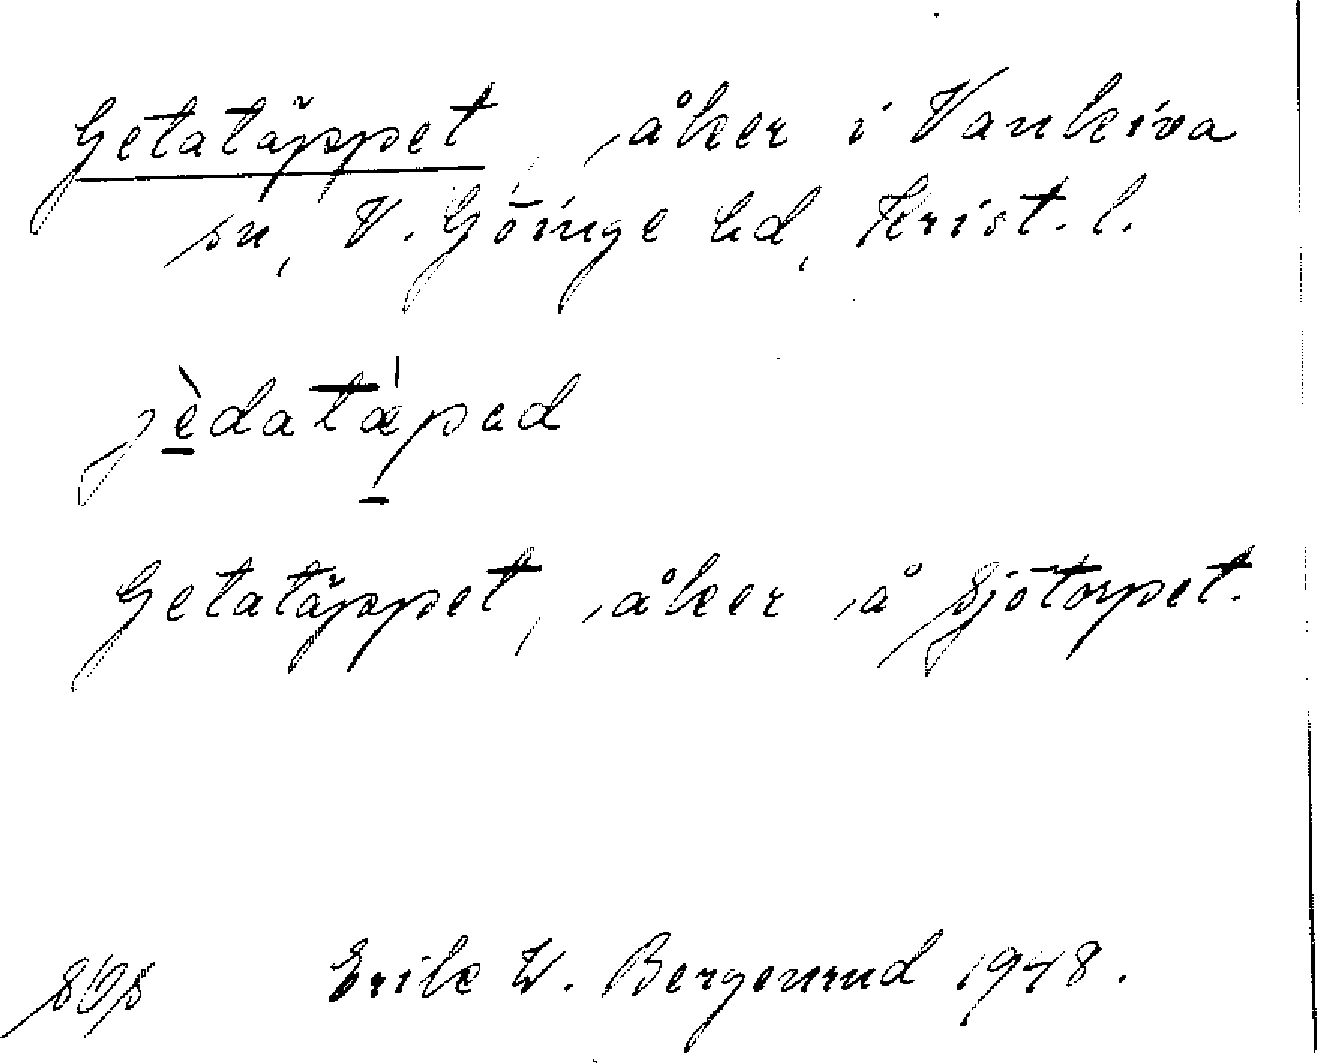 Getatäppet, åker i Vankiva
sn, V. Göinge hd, Krist. l.
jèdatæ̍pad
Getatäppet, åker å Sjötorpet.
Erik W. Bergenrud 1948.